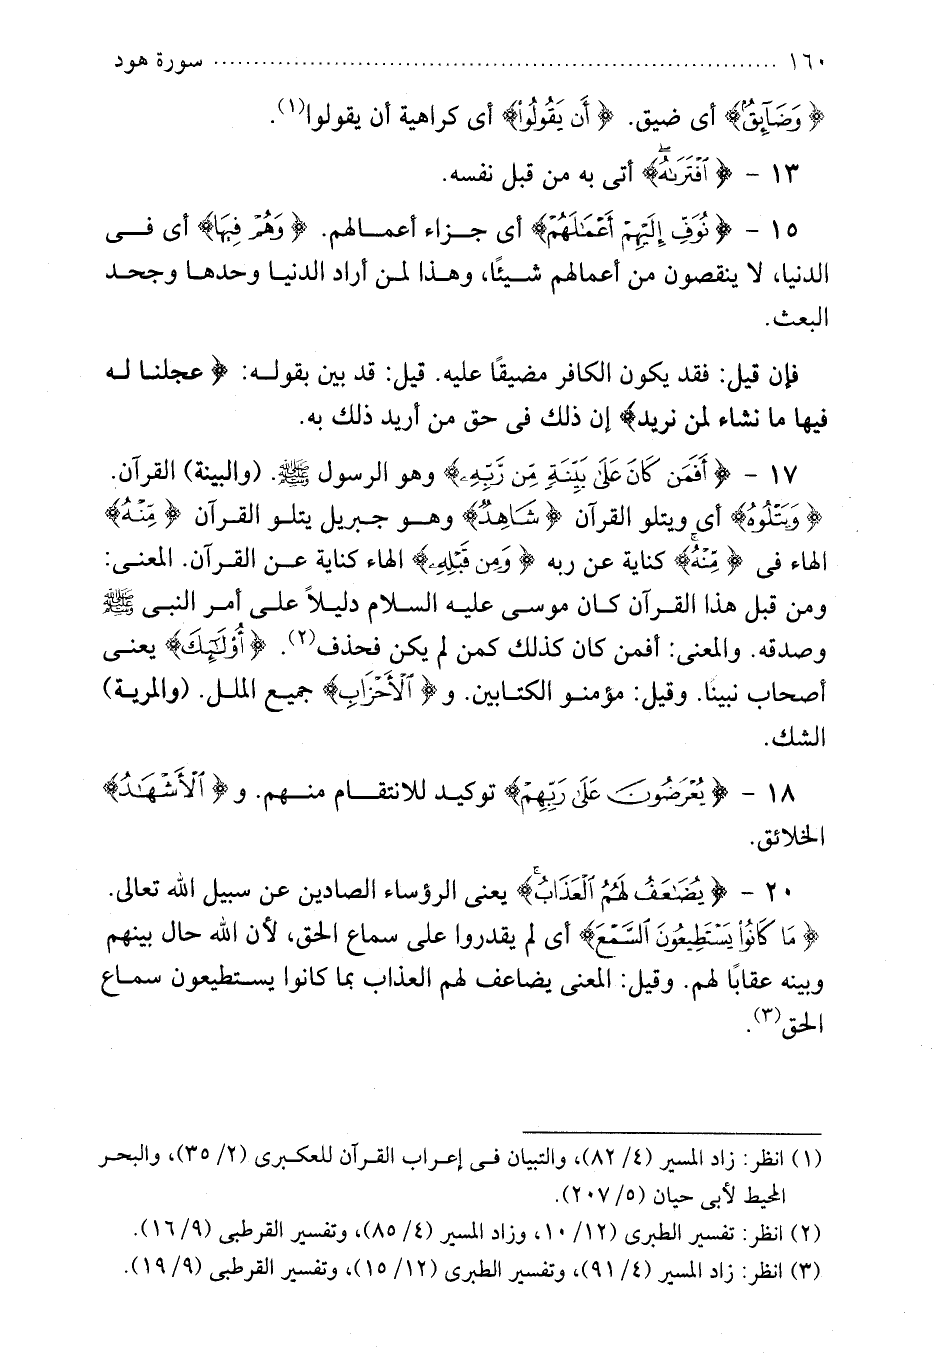 ١٦٠ ........................................................ سورة هود
﴿ وَضَآئِقٌ﴾ أى ضيق. ﴿ أَن يَقُولُوا۟﴾ أى كراهية أن يقولوا(١).
١٣ - ﴿ ٱفْتَرَىٰهُ ۖ﴾ أتى به من قبل نفسه.
١٥ - ﴿ نُوَفِّ إِلَيْهِمْ أَعْمَٰلَهُمْ﴾ أى جزاء أعمالهم. ﴿ وَهُمْ فِيهَا﴾ أى فى
الدنيا، لا ينقصون من أعمالهم شيئًا، وهذا لمن أراد الدنيا وحدها وجحد
البعث.
فإن قيل: فقد يكون الكافر مضيقًا عليه. قيل: قد بين بقوله: ﴿ عجلنا له
فيها ما نشاء لمن نريد﴾ إن ذلك فى حق من أريد ذلك به.
١٧ - ﴿ أَفَمَن كَانَ عَلَىٰ بَيِّنَةٍ مِّن رَّبِّهِۦ﴾ وهو الرسول ﷺ. (والبينة) القرآن.
﴿ وَيَتْلُوهُ﴾ أى ويتلو القرآن ﴿ شَاهِدٌ﴾ وهو جبريل يتلو القرآن ﴿ مِّنْهُ﴾
الهاء فى ﴿ مِّنْهُ ۚ﴾ كناية عن ربه ﴿ وَمِن قَبْلِهِۦ﴾ الهاء كناية عن القرآن. المعنى:
ومن قبل هذا القرآن كان موسى عليه السلام دليلاً على أمر النبى ﷺ
وصدقه. والمعنى: أفمن كان كذلك كمن لم يكن فحذف(٢). ﴿ أُو۟لَٰٓئِكَ﴾ يعنى
أصحاب نبينا. وقيل: مؤمنو الكتابين. و﴿ ٱلْأَحْزَابِ﴾ جميع الملل. (والمرية)
الشك.
١٨ - ﴿ يُعْرَضُونَ عَلَىٰ رَبِّهِمْ﴾ توكيد للانتقام منهم. و﴿ ٱلْأَشْهَٰدُ﴾
الخلائق.
٢٠ - ﴿ يُضَٰعَفُ لَهُمُ ٱلْعَذَابُ ۚ﴾ يعنى الرؤساء الصادين عن سبيل الله تعالى.
﴿ مَا كَانُوا۟ يَسْتَطِيعُونَ ٱلسَّمْعَ﴾ أى لم يقدروا على سماع الحق، لأن الله حال بينهم
وبينه عقابًا لهم. وقيل: المعنى يضاعف لهم العذاب بما كانوا يستطيعون سماع
الحق(٣).
(١) انظر: زاد المسير (٤/ ٨٢)، والتبيان فى إعراب القرآن للعكبرى (٢/ ٣٥)، والبحر
المحيط لأبى حيان (٥/ ٢٠٧).
(٢) انظر: تفسير الطبرى (١٢/ ١٠، وزاد المسير (٤/ ٨٥)، وتفسير القرطبى (٩/ ١٦).
(٣) انظر: زاد المسير (٤/ ٩١)، وتفسير الطبرى (١٢/ ١٥)، وتفسير القرطبى (٩/ ١٩).